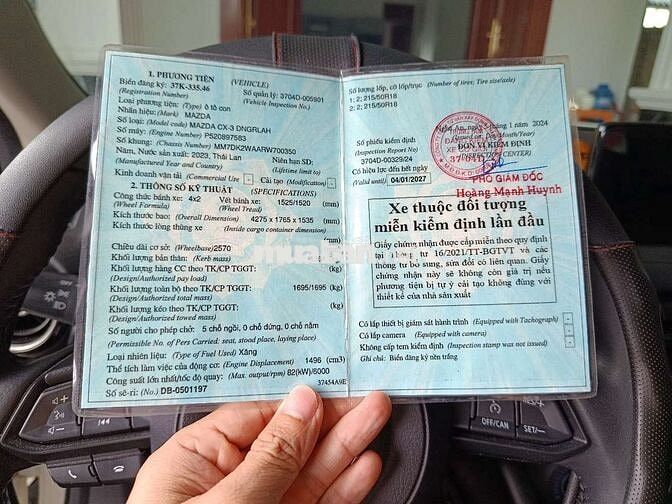 1. PHƯƠNG TIỆN (VEHICLE)
Biển đăng ký: 37K-335.46 Số quản lý: 3704D-005901
(Registration Number) (Vehicle Inspection No.)
Loại phương tiện: (Type) ô tô con
Nhãn hiệu: (Mark) MAZDA
Số loại: (Model code) MAZDA CX-3 DNGRLAH
Số máy: (Engine Number) P520897583
Số khung: (Chassis Number) MM7DK2WAARW700350
Năm, Nước sản xuất: 2023, Thái Lan Niên hạn SD:
(Manufactured Year and Country) (Lifetime limit to)
Kinh doanh vận tải (Commercial Use) - Cải tạo (Modification) -
2. THÔNG SỐ KỸ THUẬT (SPECIFICATIONS)
Công thức bánh xe: 4x2 Vết bánh xe: 1525/1520 (mm)
(Wheel Formula) (Wheel Tread)
Kích thước bao: (Overall Dimension) 4275 x 1765 x 1535 (mm)
Kích thước lòng thùng xe (Inside cargo container dimension)
(mm)
Chiều dài cơ sở: (Wheelbase) 2570
Khối lượng bản thân: (Kerb mass) (kg)
Khối lượng hàng CC theo TK/CP TGGT: (kg)
(Design/Authorized pay load)
Khối lượng toàn bộ theo TK/CP TGGT: 1695/1695 (kg)
(Design/Authorized total mass)
Khối lượng kéo theo TK/CP TGGT: (kg)
(Design/Authorized towed mass)
Số người cho phép chở: 5 chỗ ngồi, 0 chỗ đứng, 0 chỗ nằm
(Permissible No. of Pers Carried: seat, stood place, laying place)
Loại nhiên liệu: (Type of Fuel Used) Xăng
Thể tích làm việc của động cơ: (Engine Displacement) 1496 (cm3)
Công suất lớn nhất/tốc độ quay: (Max. output/rpm) 82(kW)/6000
Số sê-ri: (No.) DB-0501197 37454A9E
Số lượng lốp, cỡ lốp/trục (Number of tires; Tire size/axle)
1: 2; 215/50R18
2: 2; 215/50R18
1 năm 2024
Số phiếu kiểm định
(Inspection Report No)
3704D-00329/24
ĐƠN VỊ KIỂM ĐỊNH
Có hiệu lực đến hết ngày
(Valid until) 04/01/2027
PHÓ GIÁM ĐỐC
Hoàng Mạnh Huynh
Xe thuộc đối tượng
miễn kiểm định lần đầu
Giấy chứng nhận được cấp miễn theo quy định
tại Thông tư 16/2021/TT-BGTVT và các
thông tư bổ sung, sửa đổi có liên quan. Giấy
chứng nhận này sẽ không còn giá trị nếu
phương tiện bị tự ý cải tạo không đúng với
thiết kế của nhà sản xuất
Có lắp thiết bị giám sát hành trình (Equipped with Tachograph) -
Có lắp camera (Equipped with camera) -
Không cấp tem kiểm định (Inspection stamp was not issued) -
Ghi chú: Biển đăng ký nền trắng
OFF/CAN
SET/-